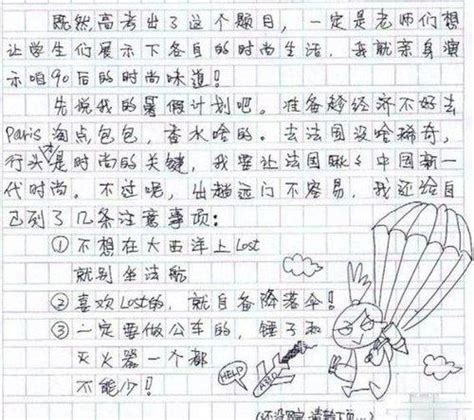 既然高考出了这个题目，一定是老师们想
让学生们展示下各自的时尚生活，我就亲身演
示咱90后的时尚味道！
先说我的暑假计划吧。准备趁经济不好去
Paris 淘点包包，香水啥的。去法国没啥稀奇，
行头是时尚的关键，我要让法国瞅瞅中国新一
代时尚。不过呢，出趟远门不容易，我还给自
己列了几条注意事项：
①不想在大西洋上Lost
就别坐法航
②喜欢Lost的，就自备降落伞！
③一定要做公车的，锤子和
灭火器一个都
不能少！
HELP
HELP
(还没写完，请翻下页...)